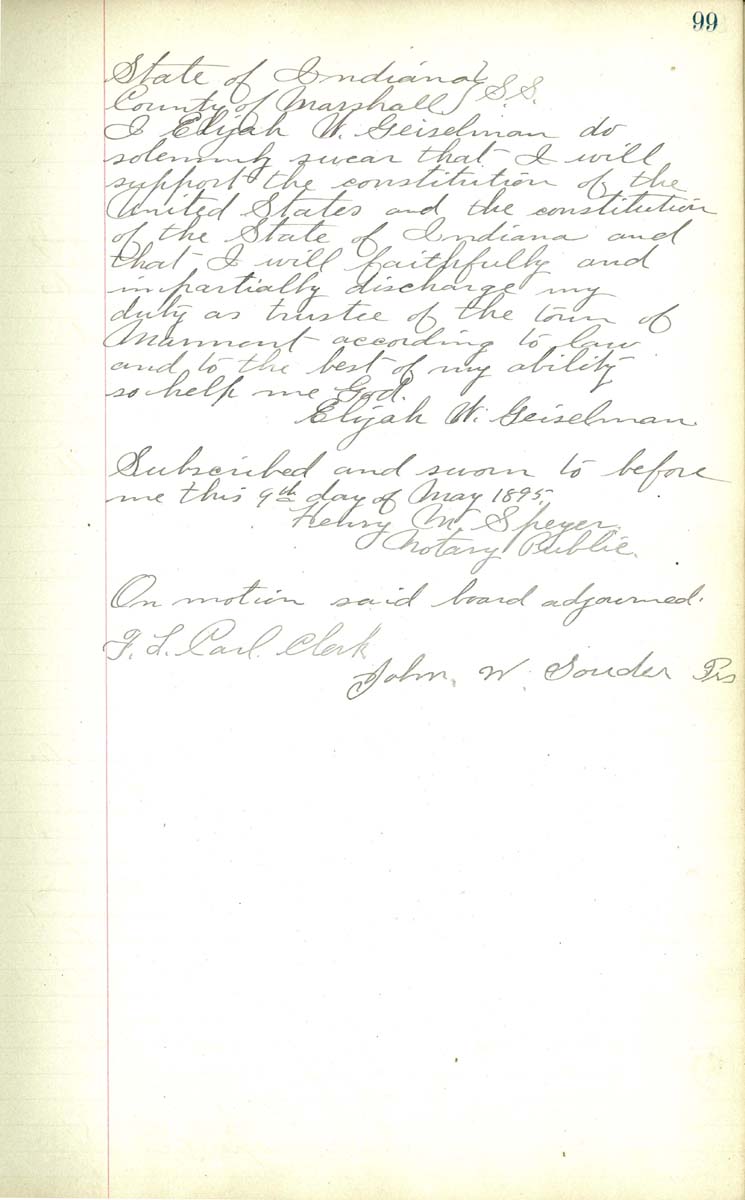 99
State of Indiana } S.S.
County of Marshall }
I Elijah W. Geiselman do
solemnly swear that I will
support the constitution of the
United States and the constitution
of the State of Indiana and
that I will faithfully and
impartially discharge my
duty as trustee of the town of
Marmont according to law
and to the best of my ability
so help me God.
Elijah W. Geiselman.
Subscribed and sworn to before
me this 9th day of May 1895.
Henry M. Speyer.
Notary Public.
On motion said board adjourned.
F. L. Carl. Clerk
John. W. Souder Prs